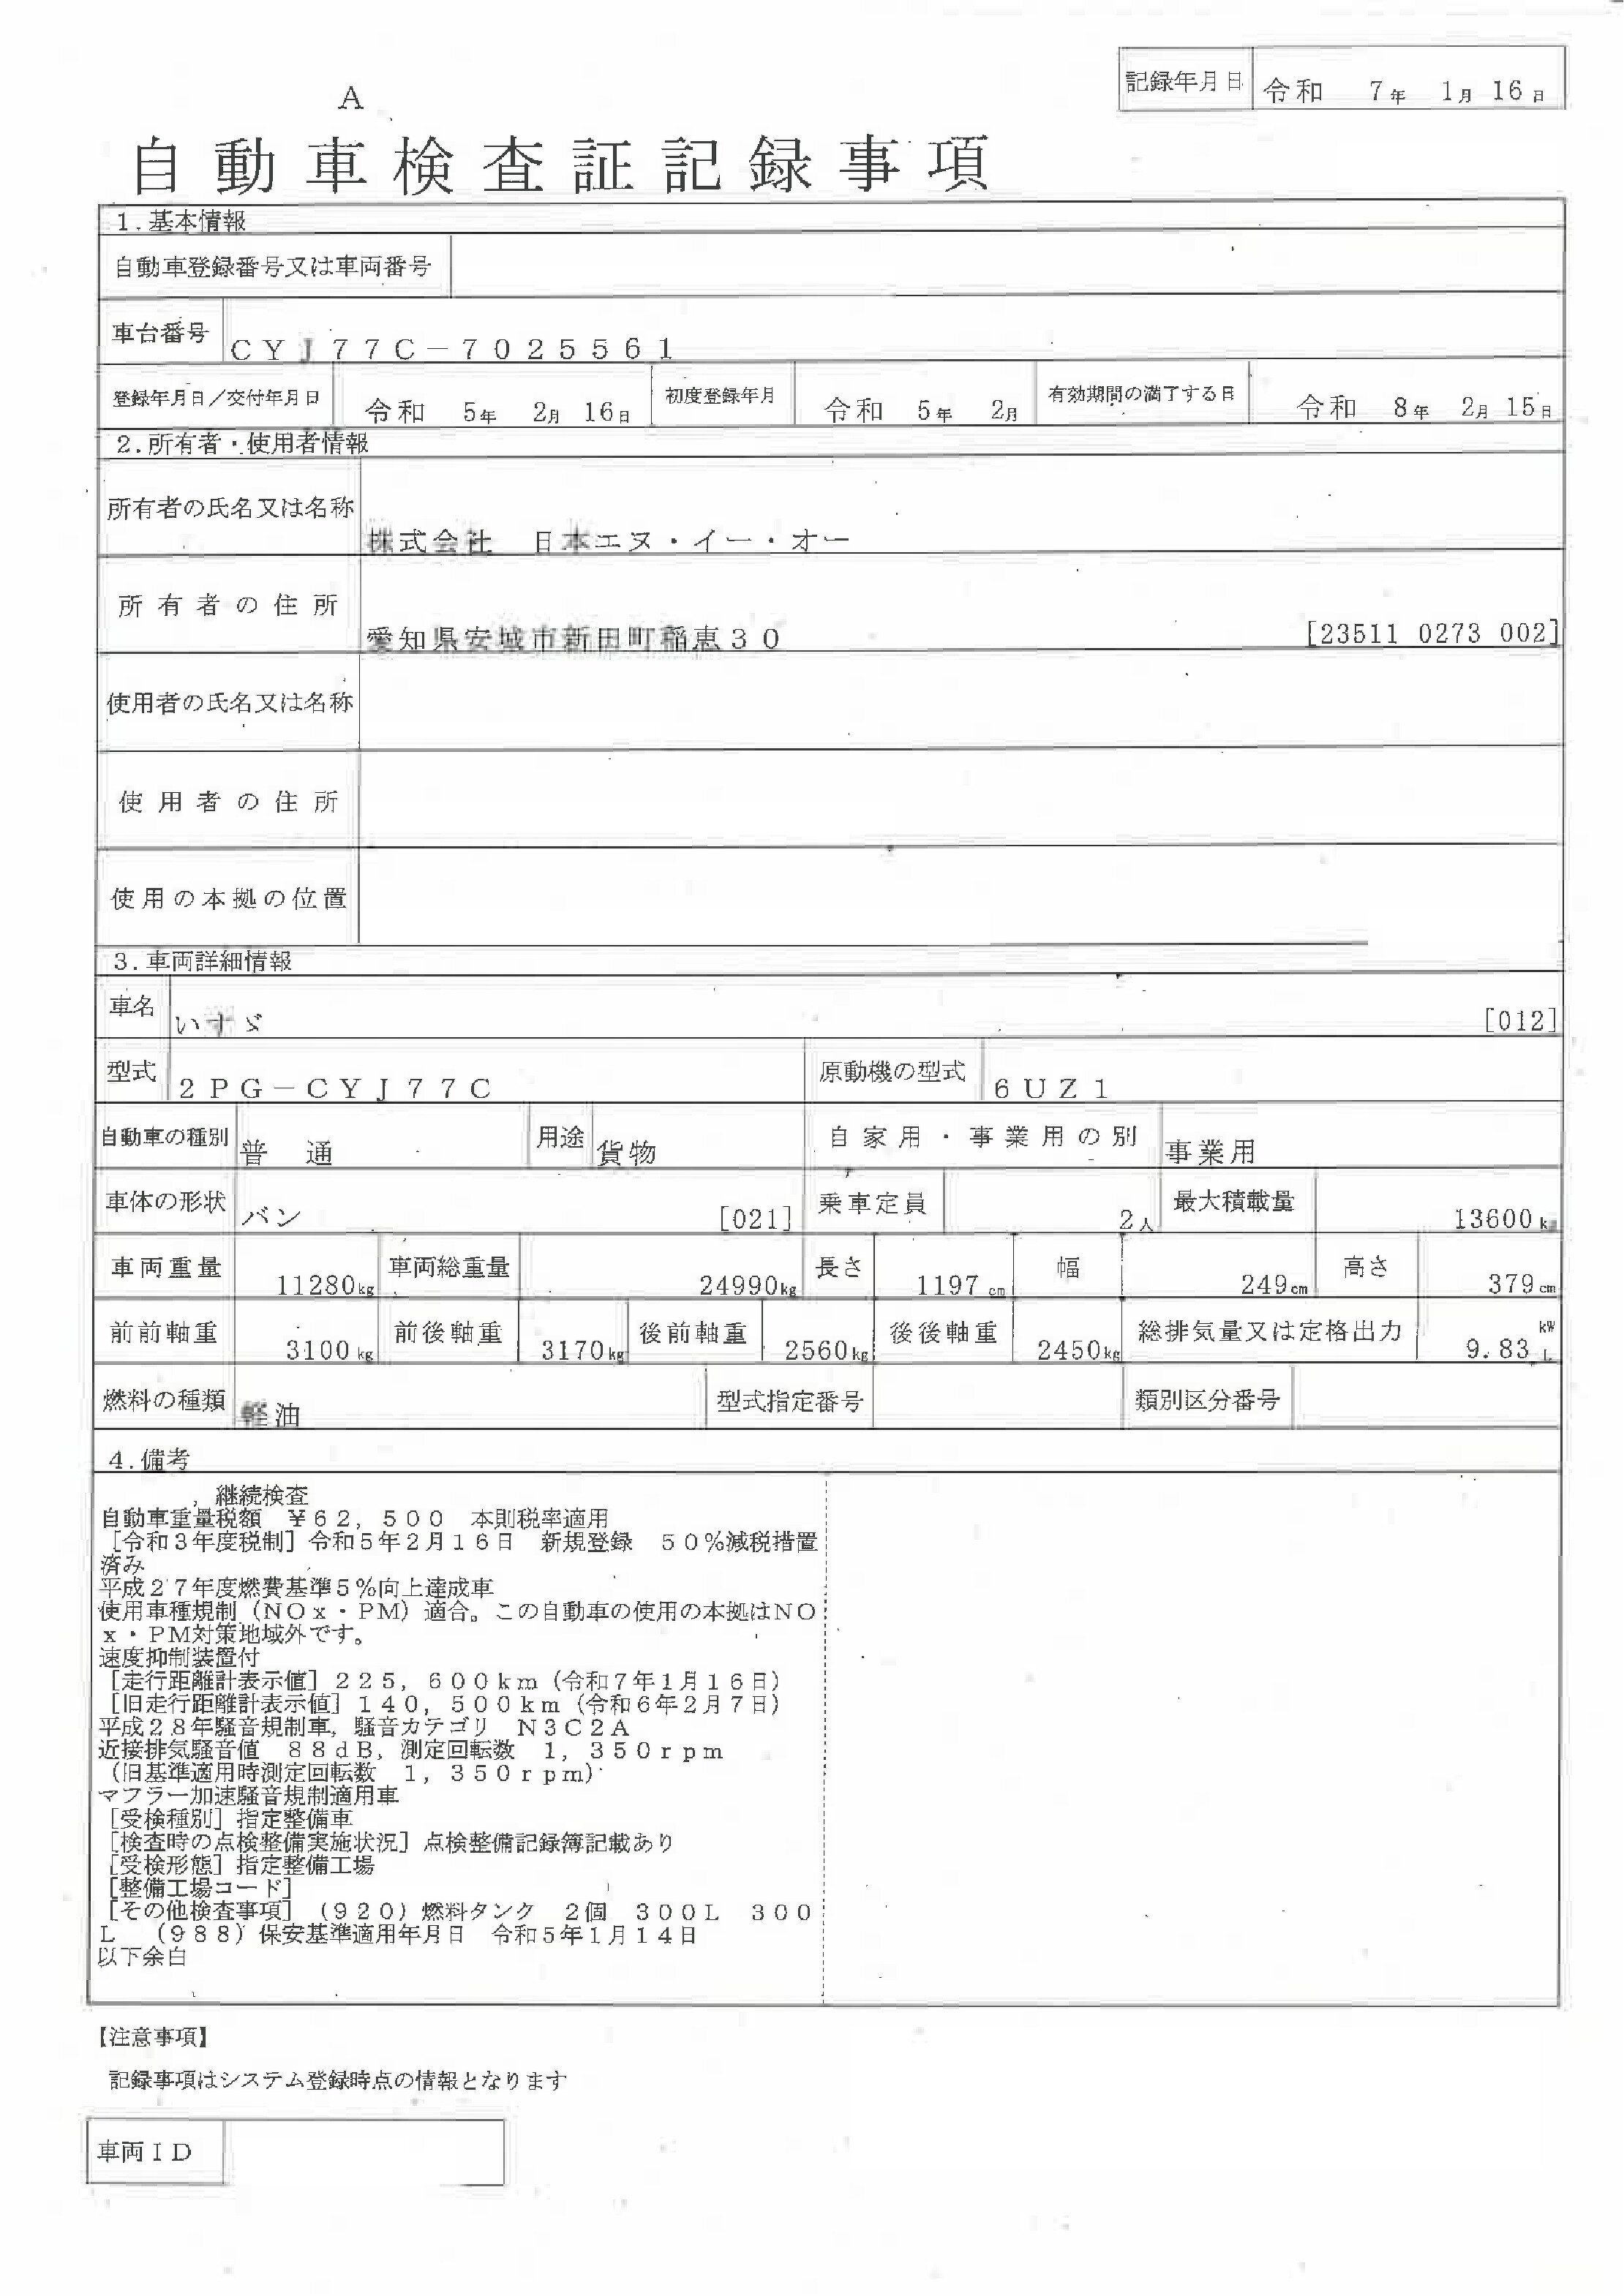 A
記録年月日 令和 7年 1月 16日
自動車検査証記録事項
1.基本情報
自動車登録番号又は車両番号
車台番号 CYJ77C-7025561
登録年月日/交付年月日 令和 5年 2月 16日 初度登録年月 令和 5年 2月 有効期間の満了する日 令和 8年 2月 15日
2.所有者・使用者情報
所有者の氏名又は名称 株式会社 日本エヌ・イー・オー
所有者の住所 愛知県安城市新田町稲恵30 [23511 0273 002]
使用者の氏名又は名称
使用者の住所
使用の本拠の位置
3.車両詳細情報
車名 いすゞ [012]
型式 2PG-CYJ77C 原動機の型式 6UZ1
自動車の種別 普通 用途 貨物 自家用・事業用の別 事業用
車体の形状 バン [021] 乗車定員 2人 最大積載量 13600kg
車両重量 11280kg 車両総重量 24990kg 長さ 1197cm 幅 249cm 高さ 379cm
前前軸重 3100kg 前後軸重 3170kg 後前軸重 2560kg 後後軸重 2450kg 総排気量又は定格出力 9.83 kW L
燃料の種類 軽油 型式指定番号 類別区分番号
4.備考
, 継続検査
自動車重量税額 ¥62,500 本則税率適用
[令和3年度税制]令和5年2月16日 新規登録 50%減税措置
済み
平成27年度燃費基準5%向上達成車
使用車種規制(NOx・PM)適合。この自動車の使用の本拠はNO
x・PM対策地域外です。
速度抑制装置付
[走行距離計表示値]225,600km(令和7年1月16日)
[旧走行距離計表示値]140,500km(令和6年2月7日)
平成28年騒音規制車,騒音カテゴリ N3C2A
近接排気騒音値 88dB,測定回転数 1,350rpm
(旧基準適用時測定回転数 1,350rpm)
マフラー加速騒音規制適用車
[受検種別]指定整備車
[検査時の点検整備実施状況]点検整備記録簿記載あり
[受検形態]指定整備工場
[整備工場コード]
[その他検査事項](920)燃料タンク 2個 300L 300
L (988)保安基準適用年月日 令和5年1月14日
以下余白
【注意事項】
記録事項はシステム登録時点の情報となります
車両ID